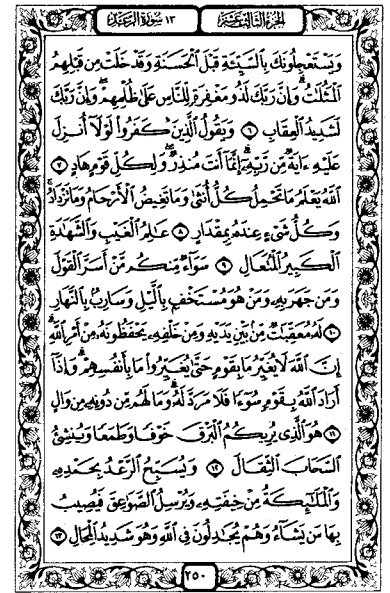 الجزء الثالث عشر
١٣ سورة الرعد
وَيَسْتَعْجِلُونَكَ بِالسَّيِّئَةِ قَبْلَ الْحَسَنَةِ وَقَدْ خَلَتْ مِن قَبْلِهِمُ
الْمَثُلَٰتُ وَإِنَّ رَبَّكَ لَذُو مَغْفِرَةٍ لِّلنَّاسِ عَلَىٰ ظُلْمِهِمْ وَإِنَّ رَبَّكَ
لَشَدِيدُ الْعِقَابِ ٦ وَيَقُولُ الَّذِينَ كَفَرُوا لَوْلَا أُنزِلَ
عَلَيْهِ ءَايَةٌ مِّن رَّبِّهِ إِنَّمَا أَنتَ مُنذِرٌ وَلِكُلِّ قَوْمٍ هَادٍ ٧
اللَّهُ يَعْلَمُ مَا تَحْمِلُ كُلُّ أُنثَىٰ وَمَا تَغِيضُ الْأَرْحَامُ وَمَا تَزْدَادُ
وَكُلُّ شَيْءٍ عِندَهُ بِمِقْدَارٍ ٨ عَٰلِمُ الْغَيْبِ وَالشَّهَٰدَةِ
الْكَبِيرُ الْمُتَعَالِ ٩ سَوَاءٌ مِّنكُم مَّنْ أَسَرَّ الْقَوْلَ
وَمَن جَهَرَ بِهِ وَمَنْ هُوَ مُسْتَخْفٍ بِاللَّيْلِ وَسَارِبٌ بِالنَّهَارِ
١٠ لَهُ مُعَقِّبَٰتٌ مِّن بَيْنِ يَدَيْهِ وَمِنْ خَلْفِهِ يَحْفَظُونَهُ مِنْ أَمْرِ اللَّهِ
إِنَّ اللَّهَ لَا يُغَيِّرُ مَا بِقَوْمٍ حَتَّىٰ يُغَيِّرُوا مَا بِأَنفُسِهِمْ وَإِذَا
أَرَادَ اللَّهُ بِقَوْمٍ سُوءًا فَلَا مَرَدَّ لَهُ وَمَا لَهُم مِّن دُونِهِ مِن وَالٍ
١١ هُوَ الَّذِي يُرِيكُمُ الْبَرْقَ خَوْفًا وَطَمَعًا وَيُنشِئُ
السَّحَابَ الثِّقَالَ ١٢ وَيُسَبِّحُ الرَّعْدُ بِحَمْدِهِ
وَالْمَلَٰئِكَةُ مِنْ خِيفَتِهِ وَيُرْسِلُ الصَّوَٰعِقَ فَيُصِيبُ
بِهَا مَن يَشَاءُ وَهُمْ يُجَٰدِلُونَ فِي اللَّهِ وَهُوَ شَدِيدُ الْمِحَالِ ١٣
٢٥٠